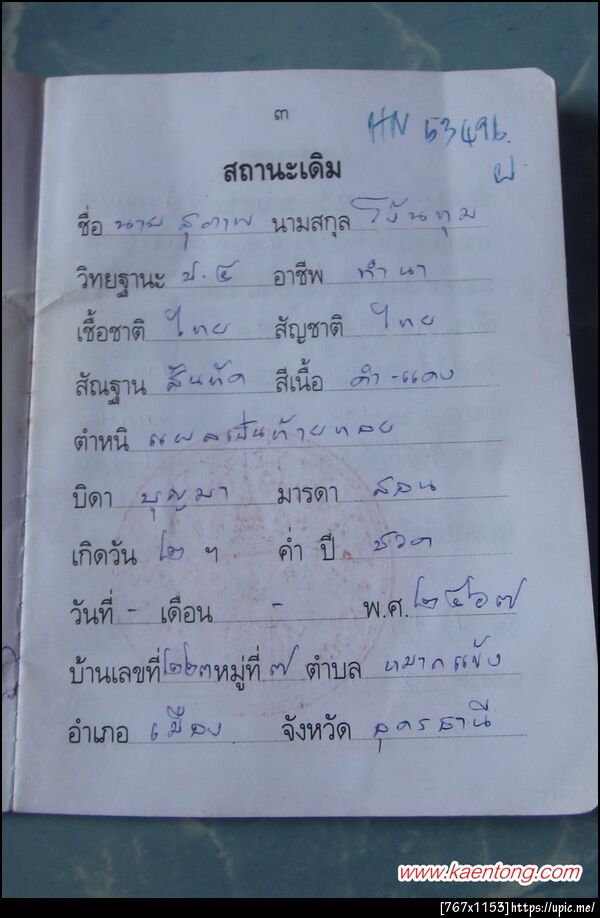 ๓
HN 53496.
สถานะเดิม
ชื่อ นาย สุภาพ นามสกุล
วิทยฐานะ ป.๔ อาชีพ ทำนา
เชื้อชาติ ไทย สัญชาติ ไทย
สัณฐาน สันทัด สีเนื้อ ดำ-แดง
ตำหนิ แผลเป็นท้ายทอย
บิดา บุญมา มารดา สอน
เกิดวัน ๒ ฯ ค่ำ ปี ชวด
วันที่ - เดือน - พ.ศ. ๒๔๖๗
บ้านเลขที่ ๒๒๓ หมู่ที่ ๗ ตำบล หมากแข้ง
อำเภอ เมือง จังหวัด อุดรธานี
www.kaentong.com
[767x1153]https://upic.me/